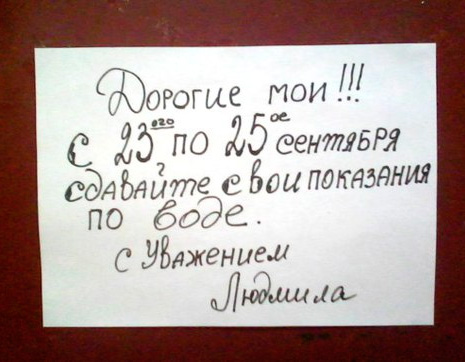 Дорогие мои!!!
с 23ого по 25ое сентября
сдавайте свои показания
по воде.
с Уважением
Людмила